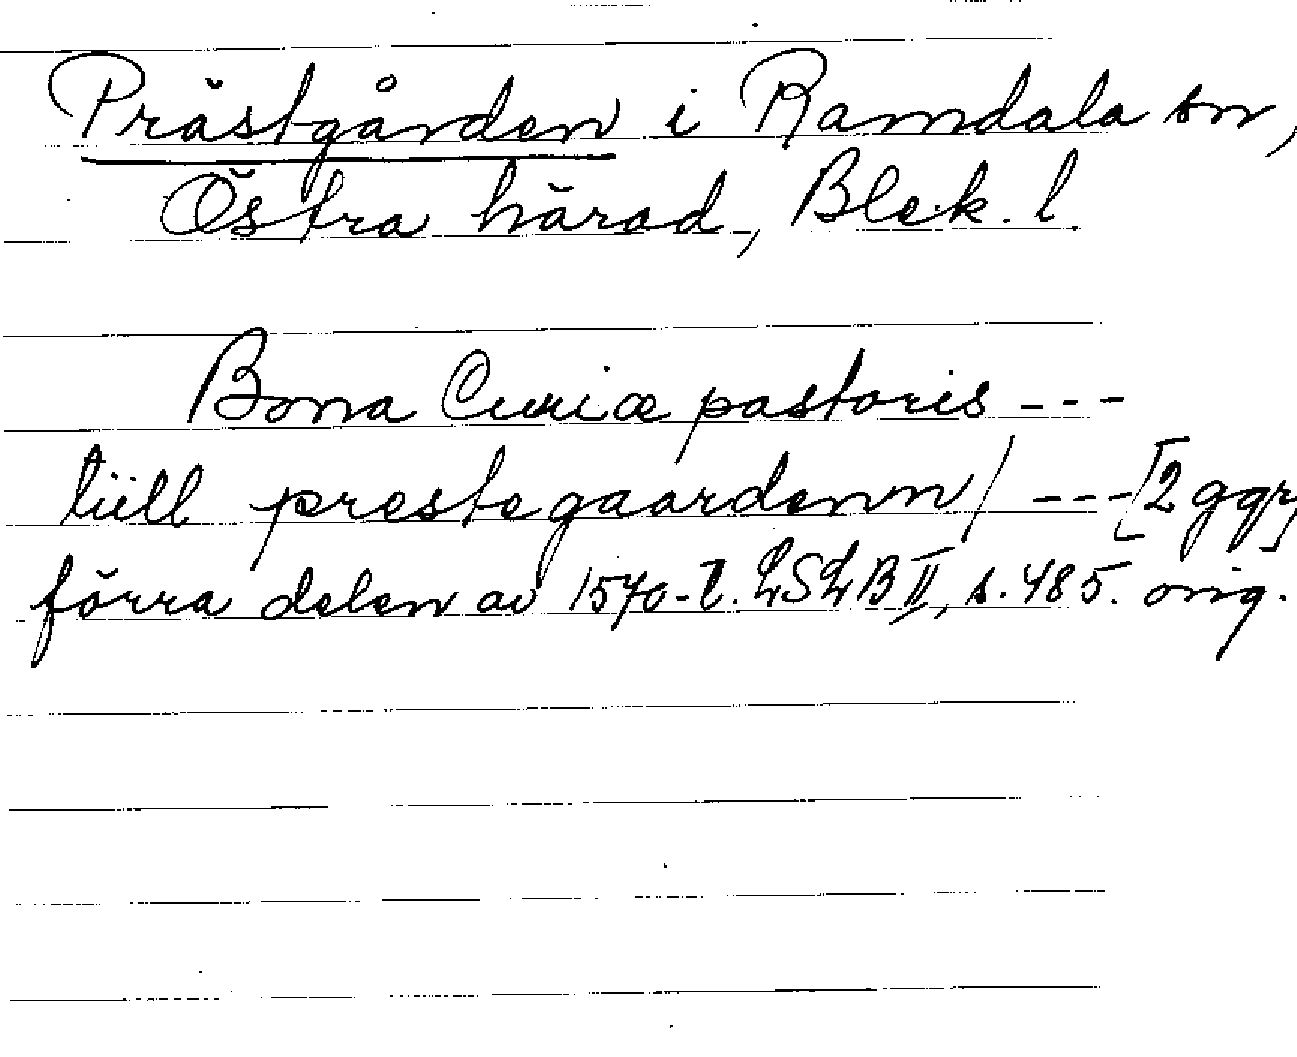 Prästgården i Ramdala sn,
Östra härad, Blek. l.
Bona Curiæ pastoris ---
tiill prestegaardenn/ --- [2 ggr]
förra delen av 1570-t. LSLB II, s. 485. orig.